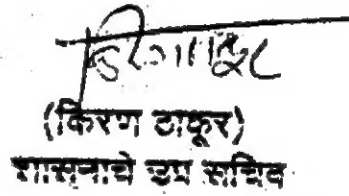 (किरण ठाकूर)
शासनाचे उप सचिव